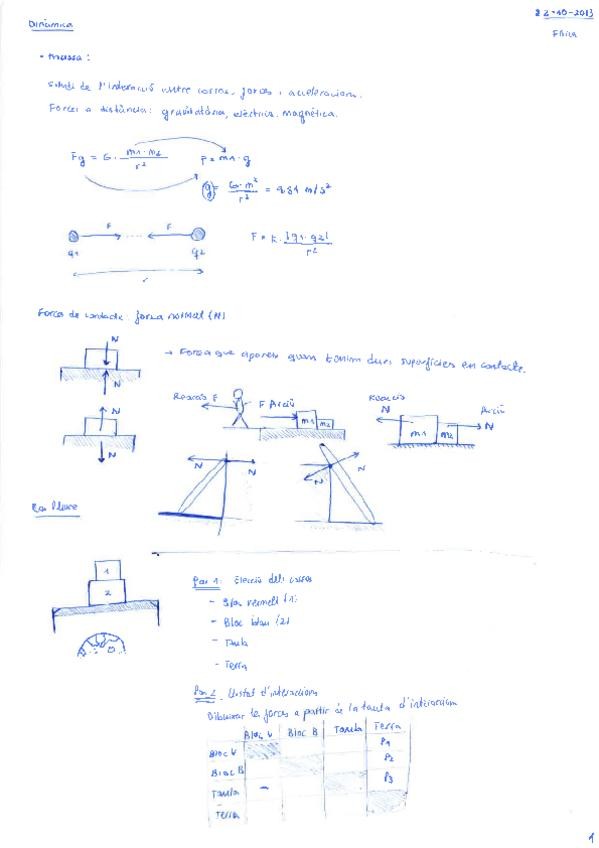 22-10-2013
Dinàmica
Física
Estudi de l'interacció entre cossos, forces i acceleracions.
Forces a distància: gravitatòria, elèctrica, magnètica.
Fg = G · m1 · m2 / r² P = m1 · g
g = G · m / r² = 9,81 m/s²
F F
q1 q2
F = K · |q1 · q2| / r²
r
Forces de contacte: força normal (N)
N
N
→ Força que apareix quan tenim dues superfícies en contacte.
N
N
Reacció F F Acció
m1 m2
Reacció
N Acció
N
m1 m2
N N
N N
Cos lliure
1
2
Pas 1: Elecció dels cossos
- Bloc vermell (1)
- Bloc blau (2)
- Taula
- Terra
Pas 2 Llistat d'interaccions
Dibuixar les forces a partir de la taula d'interaccions
Bloc V Bloc B Taula Terra
Bloc V P1
Bloc B P2
Taula - P3
Terra
1